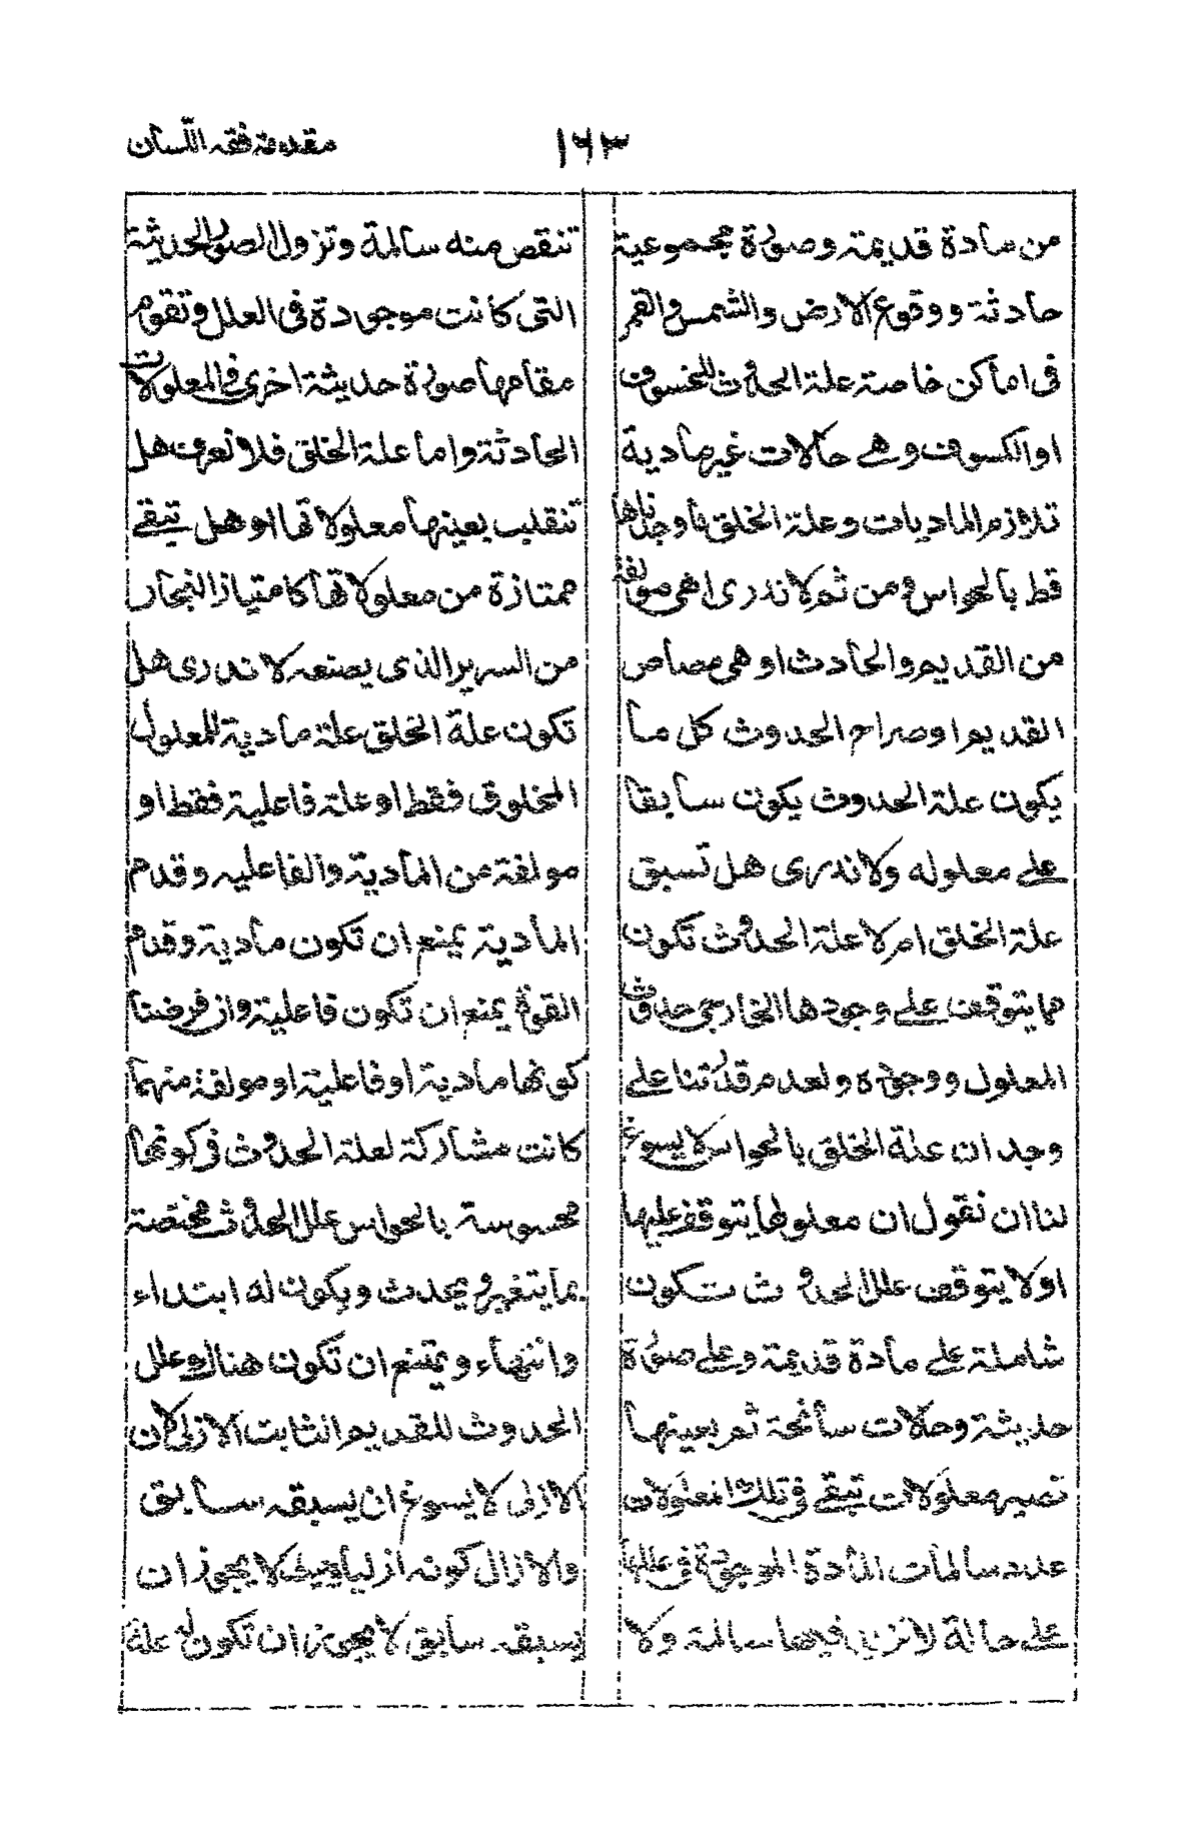 مقدمة فقه اللسان
١٦٣
من مادة قديمة وصورة مجموعية
حادثة ووقوع الارض والشمس والقمر
فى اماكن خاصة علة الحدوث للخسوف
او الكسوف وهى حالات غير مادية
تلازم الماديات وعلة الخلق ما وجدناها
قط بالحواس ومن ثم لا ندرى اهى مولفة
من القديم والحادث او هى مصاص
القديم او صراح الحدوث كل ما
يكون علة الحدوث يكون سابقا
على معلوله ولا ندرى هل تسبق
علة الخلق ام لا علة الحدوث تكون
مما يتوقف على وجودها الخارجى حدوث
المعلول ووجوده ولعدم قدرتنا على
وجدان علة الخلق بالحواس لا يسوغ
لنا ان نقول ان معلولها يتوقف عليها
او لا يتوقف علل الحدوث تكون
شاملة على مادة قديمة وعلى صورة
حديثة وحالات سانحة ثم بعينها
تصير معلولات تبقى فى تلك المعلولات
عدد سالمات المادة الموجودة فى عللها
على حالة لا تزيد فيها سالمة ولا
تنقص منه سالمة وتزول الصور الحديثة
التى كانت موجودة فى العلل وتقوم
مقامها صورة حديثة اخرى فى المعلولات
الحادثة واما علة الخلق فلا نعرف هل
تنقلب بعينها معلولاتها او هل تبقى
ممتازة من معلولاتها كامتياز النجار
من السرير الذى يصنعه لا ندرى هل
تكون علة الخلق علة مادية للمعلول
المخلوق فقط او علة فاعلية فقط او
مولفة من المادية والفاعليه وقدم
المادية يمنع ان تكون مادية وقدم
القوة يمنع ان تكون فاعلية وان فرضنا
كونها مادية او فاعلية او مولفة منهما
كانت مشاركة لعلة الحدوث فى كونها
محسوسة بالحواس علل الحدوث مختصة
بما يتغير ويحدث ويكون له ابتداء
وانتهاء ويمتنع ان تكون هنالك علل
الحدوث للقديم الثابت الازلى لان
الازلى لا يسوغ ان يسبقه سابق
والا زال كونه ازليا وحيث لا يجوز ان
يسبقه سابق لا يجوز ان تكون له علة